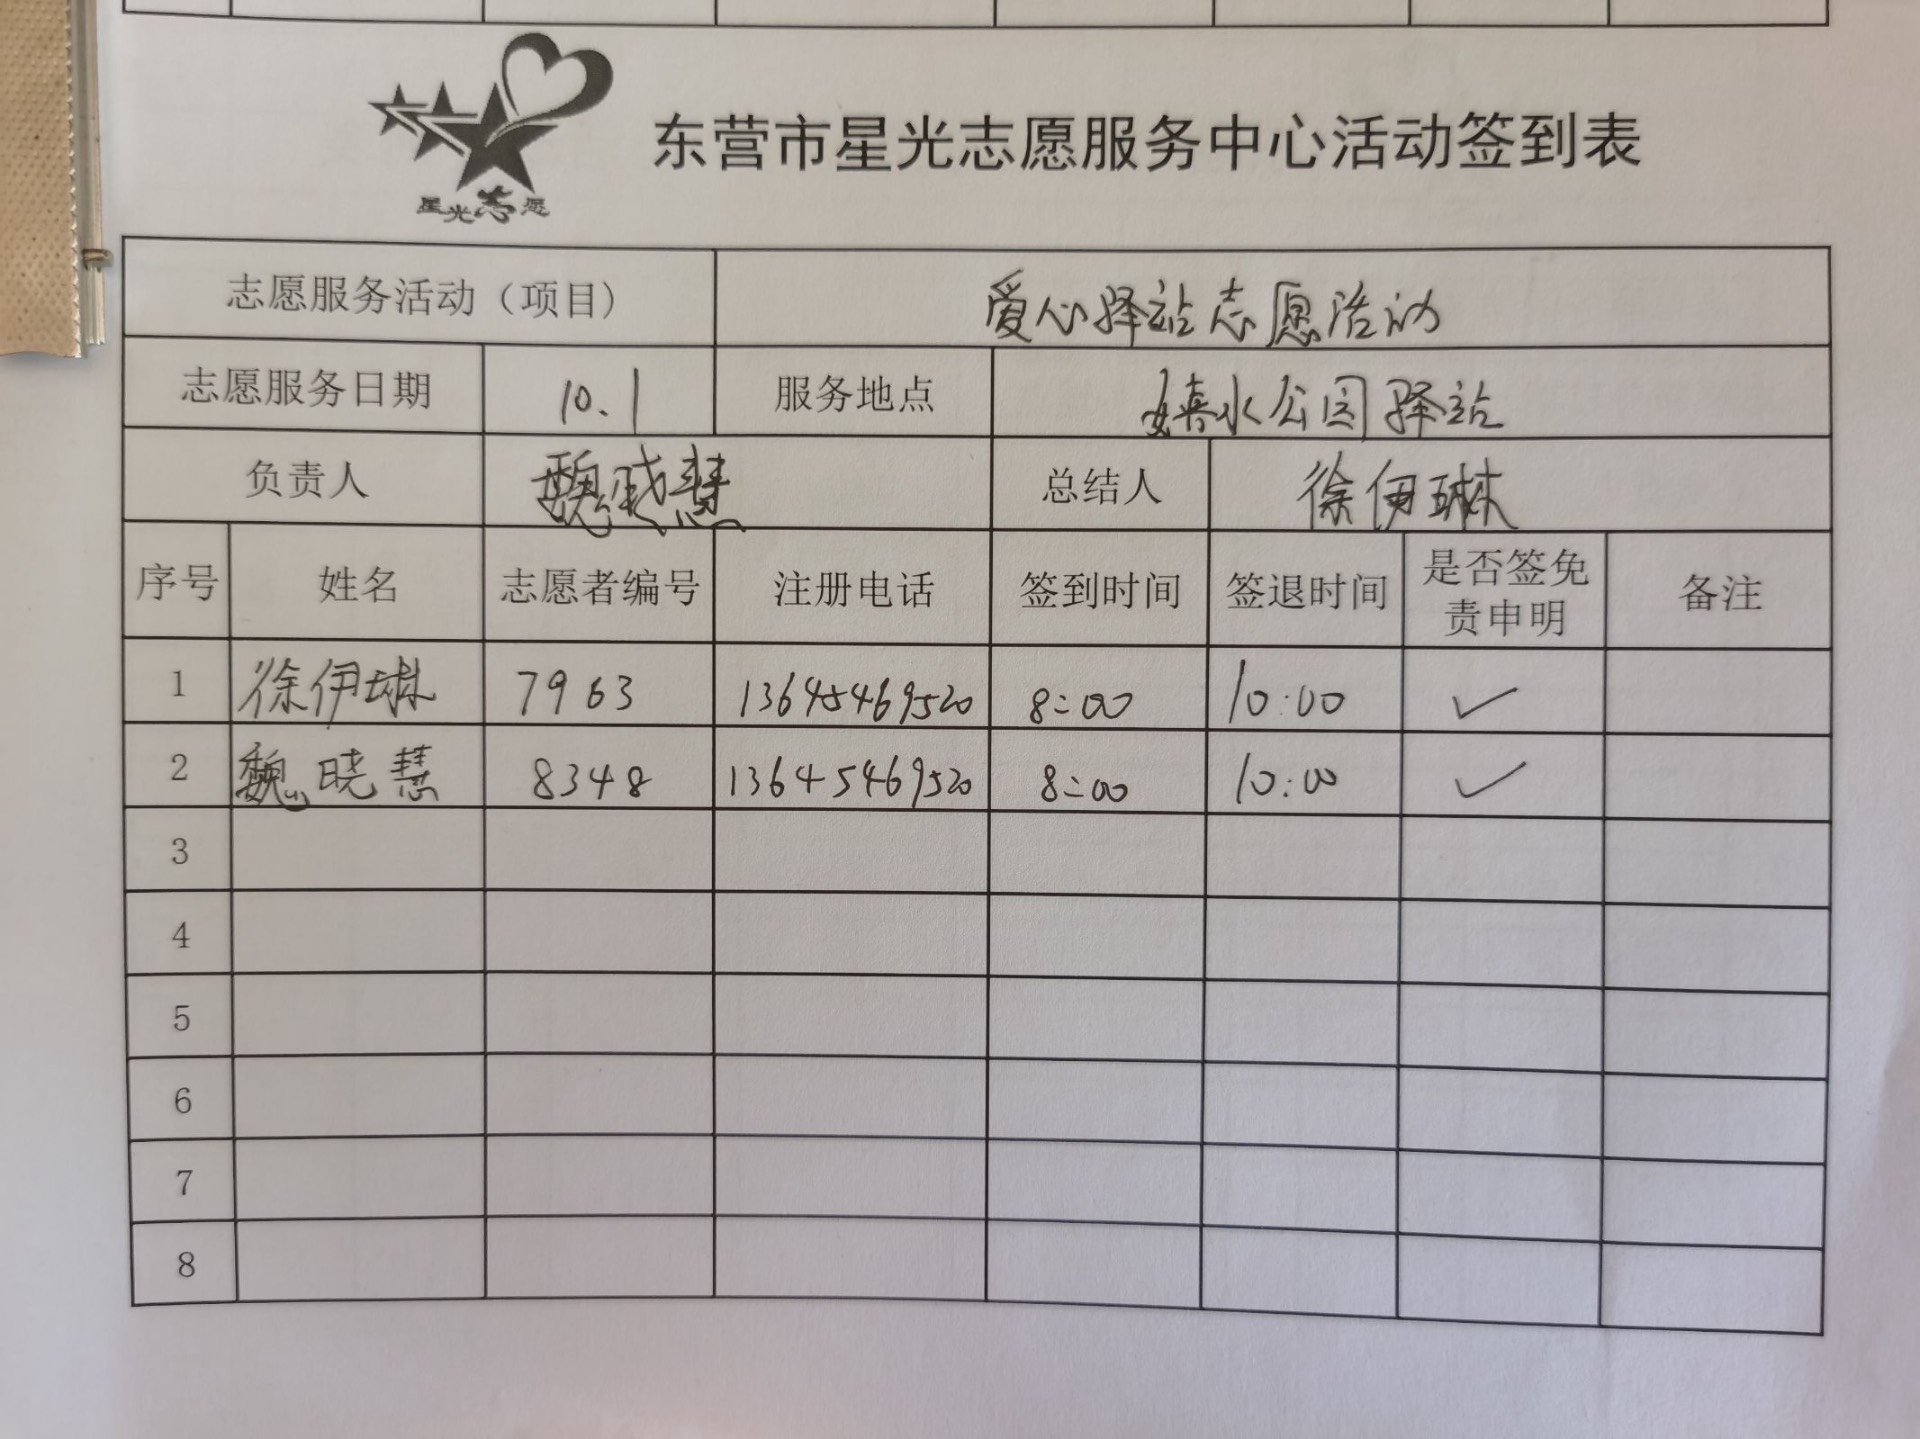 星光志愿
东营市星光志愿服务中心活动签到表
志愿服务活动（项目） 爱心驿站志愿活动
志愿服务日期 10.1 服务地点 嬉水公园驿站
负责人 魏晓慧 总结人 徐伊琳
序号 姓名 志愿者编号 注册电话 签到时间 签退时间 是否签免责申明 备注
1 徐伊琳 7963 13645469520 8:00 10:00 ✓
2 魏晓慧 8348 13645469520 8:00 10:00 ✓
3
4
5
6
7
8